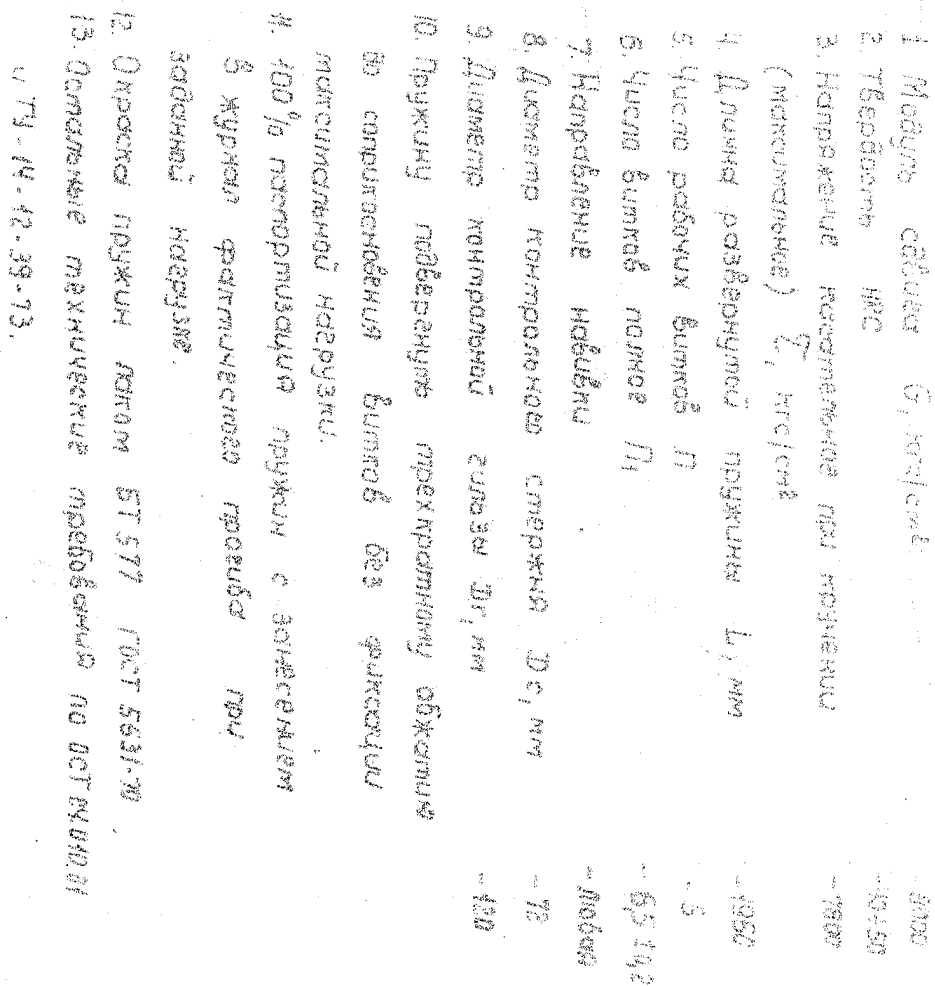 1. Модуль сдвига G, кгс/см² -
2. Твердость HRC - 40÷50
3. Напряжение касательное при кручении
(максимальное) τ, кгс/см² - 7800
4. Длина развернутой пружины L, мм - 1060
5. Число рабочих витков n - 5
6. Число витков полное n₁ - 6,5±0,2
7. Направление навивки - Левая
8. Диаметр контрольного стержня Dс, мм - 72
9. Диаметр контрольной гильзы Dг, мм
10. Пружину подвергнуть трехкратному обжатию
до соприкосновения витков без фиксации
максимальной нагрузки.
11. 100% паспортизация пружин с занесением
в журнал фактического прогиба при
заданной нагрузке.
12. Окраска пружин лаком БТ 577 ГОСТ 5631-70.
13. Остальные технические требования по ОСТ
и ТУ-14-12-39-73.